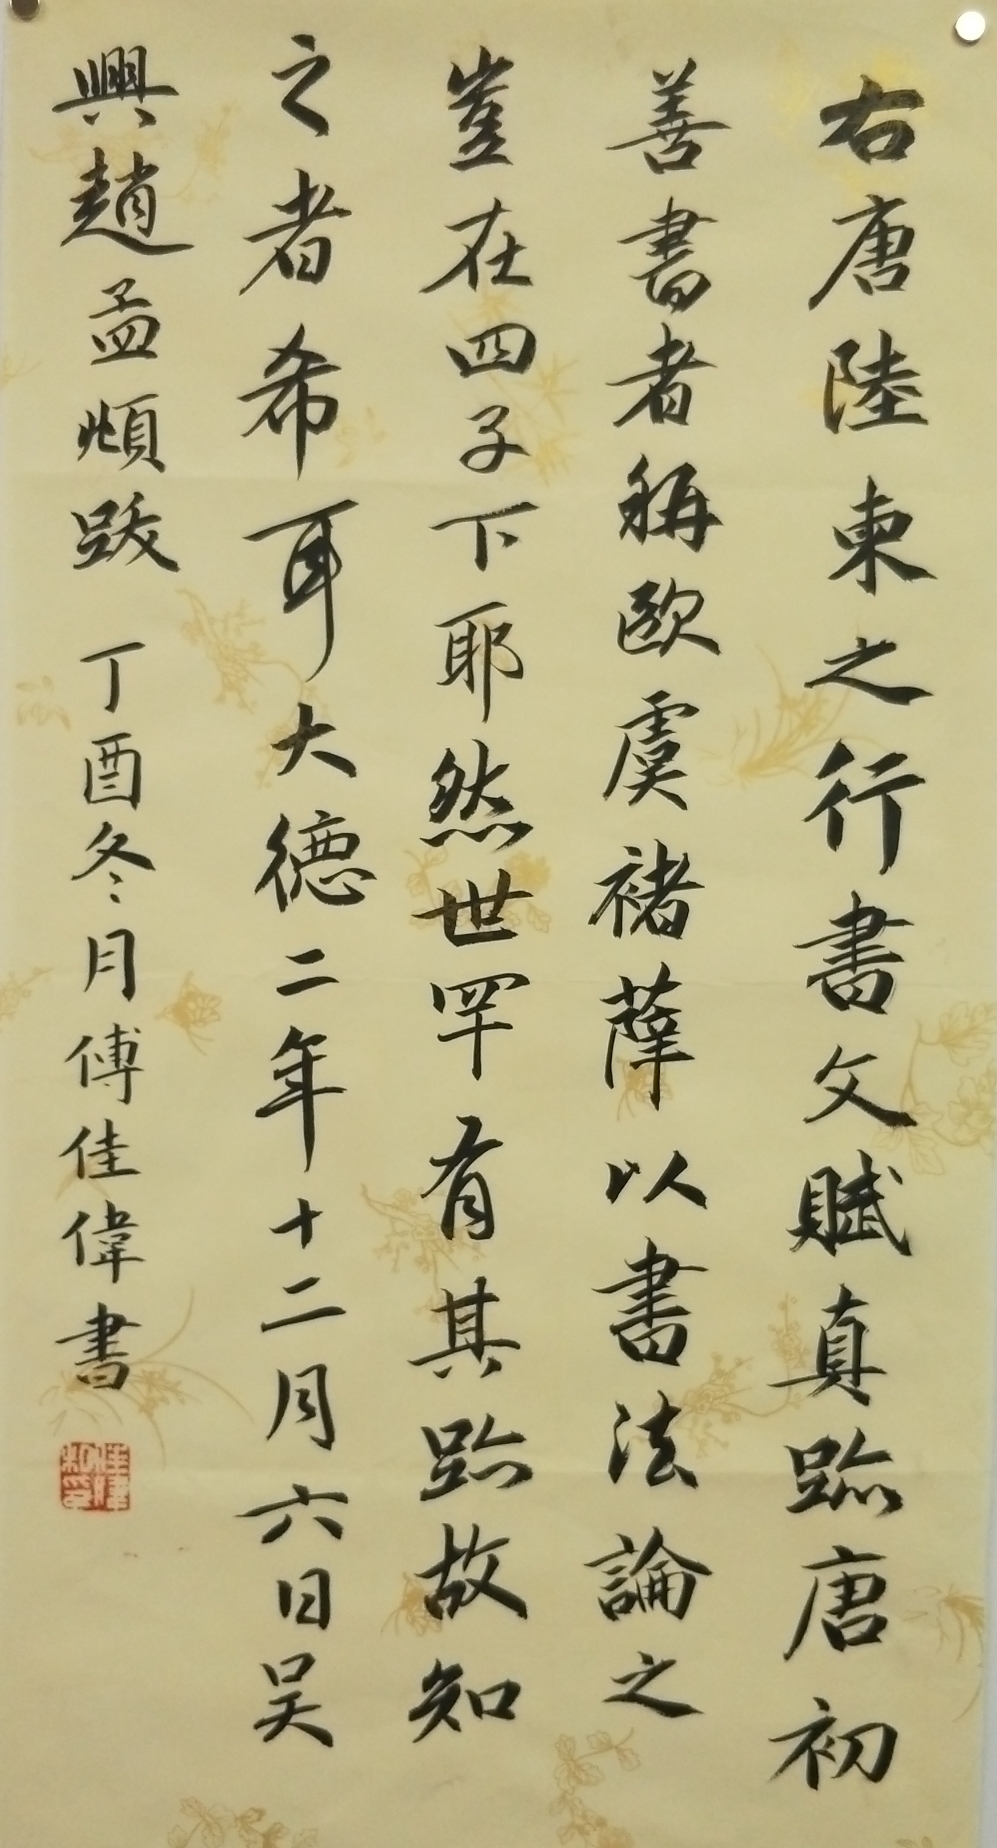 右唐陸柬之行書文賦真跡唐初
善書者稱歐虞褚薛以書法論之
豈在四子下耶然世罕有其跡故知
之者希耳大德二年十二月六日吳
興趙孟頫跋 丁酉冬月傅佳偉書